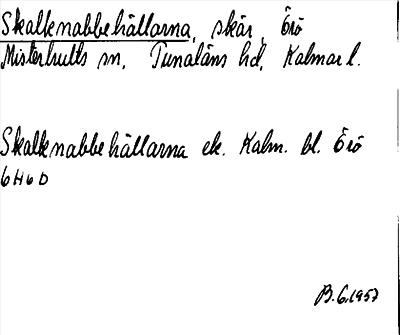 Skalkenabbehällarna, skär, Örö
Misterhults sn, Tunaläns hd, Kalmar l.
Skalkenabbehällarna ek. Kalm. bl. Örö
6H6D
B.6.1957